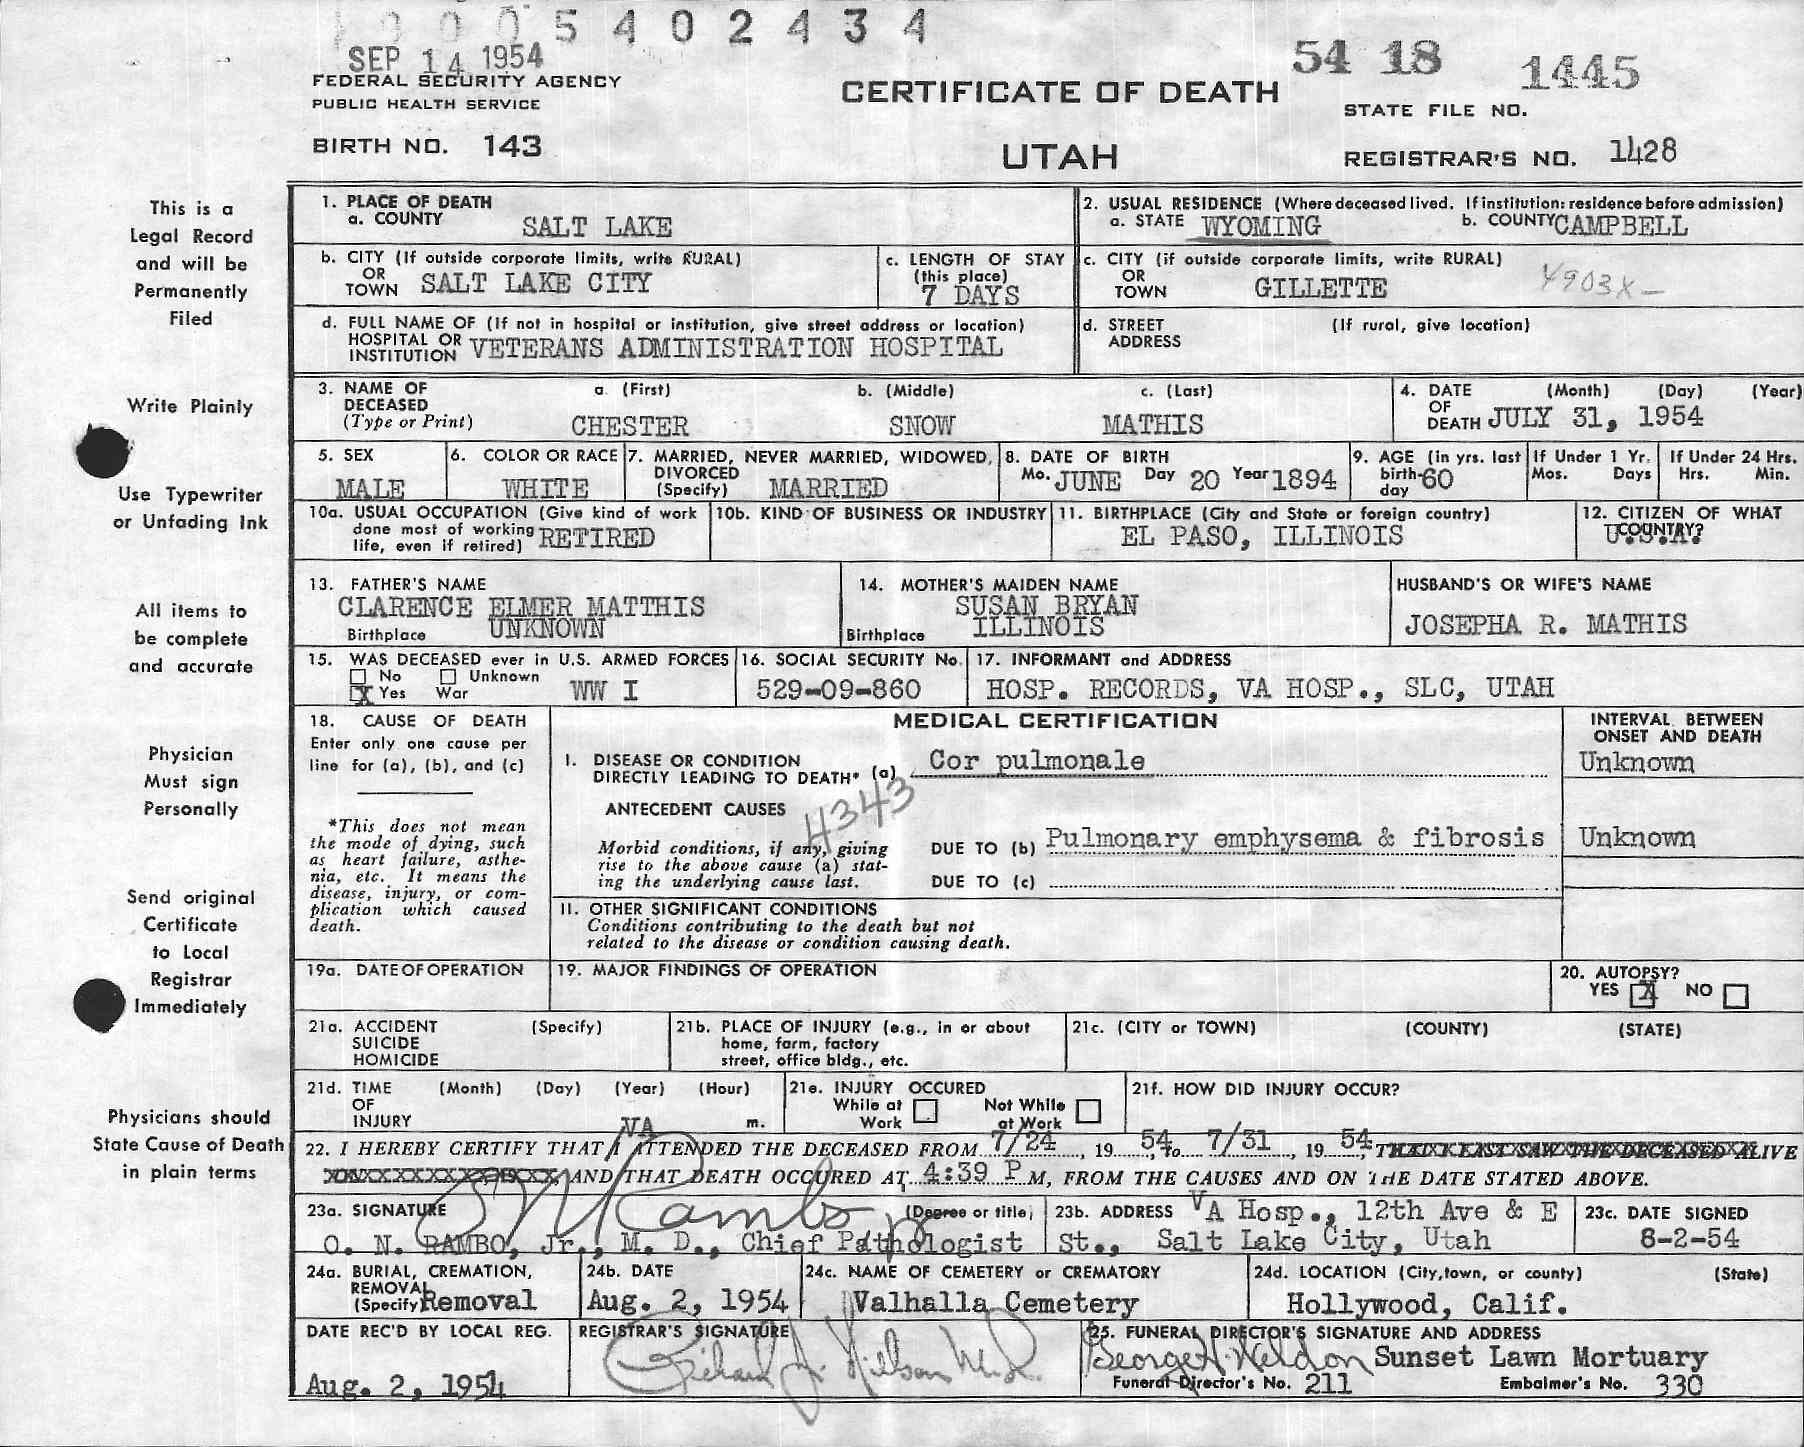 0005402434
SEP 14 1954
54 18 1445
FEDERAL SECURITY AGENCY
PUBLIC HEALTH SERVICE
CERTIFICATE OF DEATH
STATE FILE NO.
BIRTH NO. 143
UTAH
REGISTRAR'S NO. 1428
This is a
Legal Record
and will be
Permanently
Filed
Write Plainly
Use Typewriter
or Unfading Ink
All items to
be complete
and accurate
Physician
Must sign
Personally
Send original
Certificate
to Local
Registrar
Immediately
Physicians should
State Cause of Death
in plain terms
1. PLACE OF DEATH
a. COUNTY SALT LAKE
2. USUAL RESIDENCE (Where deceased lived. If institution: residence before admission)
a. STATE WYOMING b. COUNTY CAMPBELL
b. CITY (If outside corporate limits, write RURAL)
OR
TOWN SALT LAKE CITY
c. LENGTH OF STAY
(this place)
7 DAYS
c. CITY (if outside corporate limits, write RURAL)
OR
TOWN GILLETTE 4903X-
d. FULL NAME OF (If not in hospital or institution, give street address or location)
HOSPITAL OR
INSTITUTION VETERANS ADMINISTRATION HOSPITAL
d. STREET (If rural, give location)
ADDRESS
3. NAME OF a. (First) b. (Middle) c. (Last)
DECEASED
(Type or Print) CHESTER SNOW MATHIS
4. DATE (Month) (Day) (Year)
OF
DEATH JULY 31, 1954
5. SEX
MALE
6. COLOR OR RACE
WHITE
7. MARRIED, NEVER MARRIED, WIDOWED,
DIVORCED
(Specify) MARRIED
8. DATE OF BIRTH
Mo. JUNE Day 20 Year 1894
9. AGE (in yrs. last
birth- 60
day
If Under 1 Yr.
Mos. Days
If Under 24 Hrs.
Hrs. Min.
10a. USUAL OCCUPATION (Give kind of work
done most of working
life, even if retired) RETIRED
10b. KIND OF BUSINESS OR INDUSTRY
11. BIRTHPLACE (City and State or foreign country)
EL PASO, ILLINOIS
12. CITIZEN OF WHAT
COUNTRY?
U.S.A.
13. FATHER'S NAME
CLARENCE ELMER MATTHIS
Birthplace UNKNOWN
14. MOTHER'S MAIDEN NAME
SUSAN BRYAN
Birthplace ILLINOIS
HUSBAND'S OR WIFE'S NAME
JOSEPHA R. MATHIS
15. WAS DECEASED ever in U.S. ARMED FORCES
No Unknown
X Yes War WW I
16. SOCIAL SECURITY No.
529-09-860
17. INFORMANT and ADDRESS
HOSP. RECORDS, VA HOSP., SLC, UTAH
18. CAUSE OF DEATH
Enter only one cause per
line for (a), (b), and (c)
*This does not mean
the mode of dying, such
as heart failure, asthe-
nia, etc. It means the
disease, injury, or com-
plication which caused
death.
MEDICAL CERTIFICATION
INTERVAL BETWEEN
ONSET AND DEATH
I. DISEASE OR CONDITION
DIRECTLY LEADING TO DEATH* (a) Cor pulmonale Unknown
ANTECEDENT CAUSES 4343
Morbid conditions, if any, giving
rise to the above cause (a) stat-
ing the underlying cause last.
DUE TO (b) Pulmonary emphysema & fibrosis Unknown
DUE TO (c)
II. OTHER SIGNIFICANT CONDITIONS
Conditions contributing to the death but not
related to the disease or condition causing death.
19a. DATE OF OPERATION
19. MAJOR FINDINGS OF OPERATION
20. AUTOPSY?
YES X NO
21a. ACCIDENT (Specify)
SUICIDE
HOMICIDE
21b. PLACE OF INJURY (e.g., in or about
home, farm, factory
street, office bldg., etc.
21c. (CITY or TOWN) (COUNTY) (STATE)
21d. TIME (Month) (Day) (Year) (Hour)
OF
INJURY m.
21e. INJURY OCCURED
While at Work Not While at Work
21f. HOW DID INJURY OCCUR?
VA
22. I HEREBY CERTIFY THAT / ATTENDED THE DECEASED FROM 7/24, 19 54, to 7/31, 19 54, THAT I LAST SAW THE DECEASED ALIVE
AND THAT DEATH OCCURED AT 4:39 P M, FROM THE CAUSES AND ON THE DATE STATED ABOVE.
23a. SIGNATURE (Degree or title)
O. N. RAMBO, Jr., M. D., Chief Pathologist
23b. ADDRESS VA Hosp., 12th Ave & E
St., Salt Lake City, Utah
23c. DATE SIGNED
8-2-54
24a. BURIAL, CREMATION,
REMOVAL
(Specify) Removal
24b. DATE
Aug. 2, 1954
24c. NAME OF CEMETERY or CREMATORY
Valhalla Cemetery
24d. LOCATION (City, town, or county) (State)
Hollywood, Calif.
DATE REC'D BY LOCAL REG.
Aug. 2, 1954
REGISTRAR'S SIGNATURE
Richard J. Nielson M.D.
25. FUNERAL DIRECTOR'S SIGNATURE AND ADDRESS
George H. Weldon Sunset Lawn Mortuary
Funeral Director's No. 211 Embalmer's No. 330